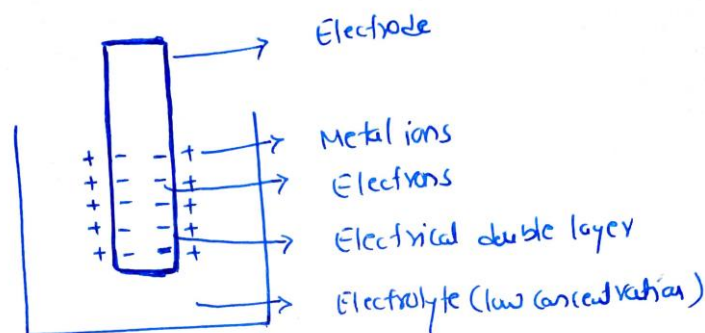 Electrode
Metal ions
Electrons
Electrical double layer
Electrolyte (low concentration)